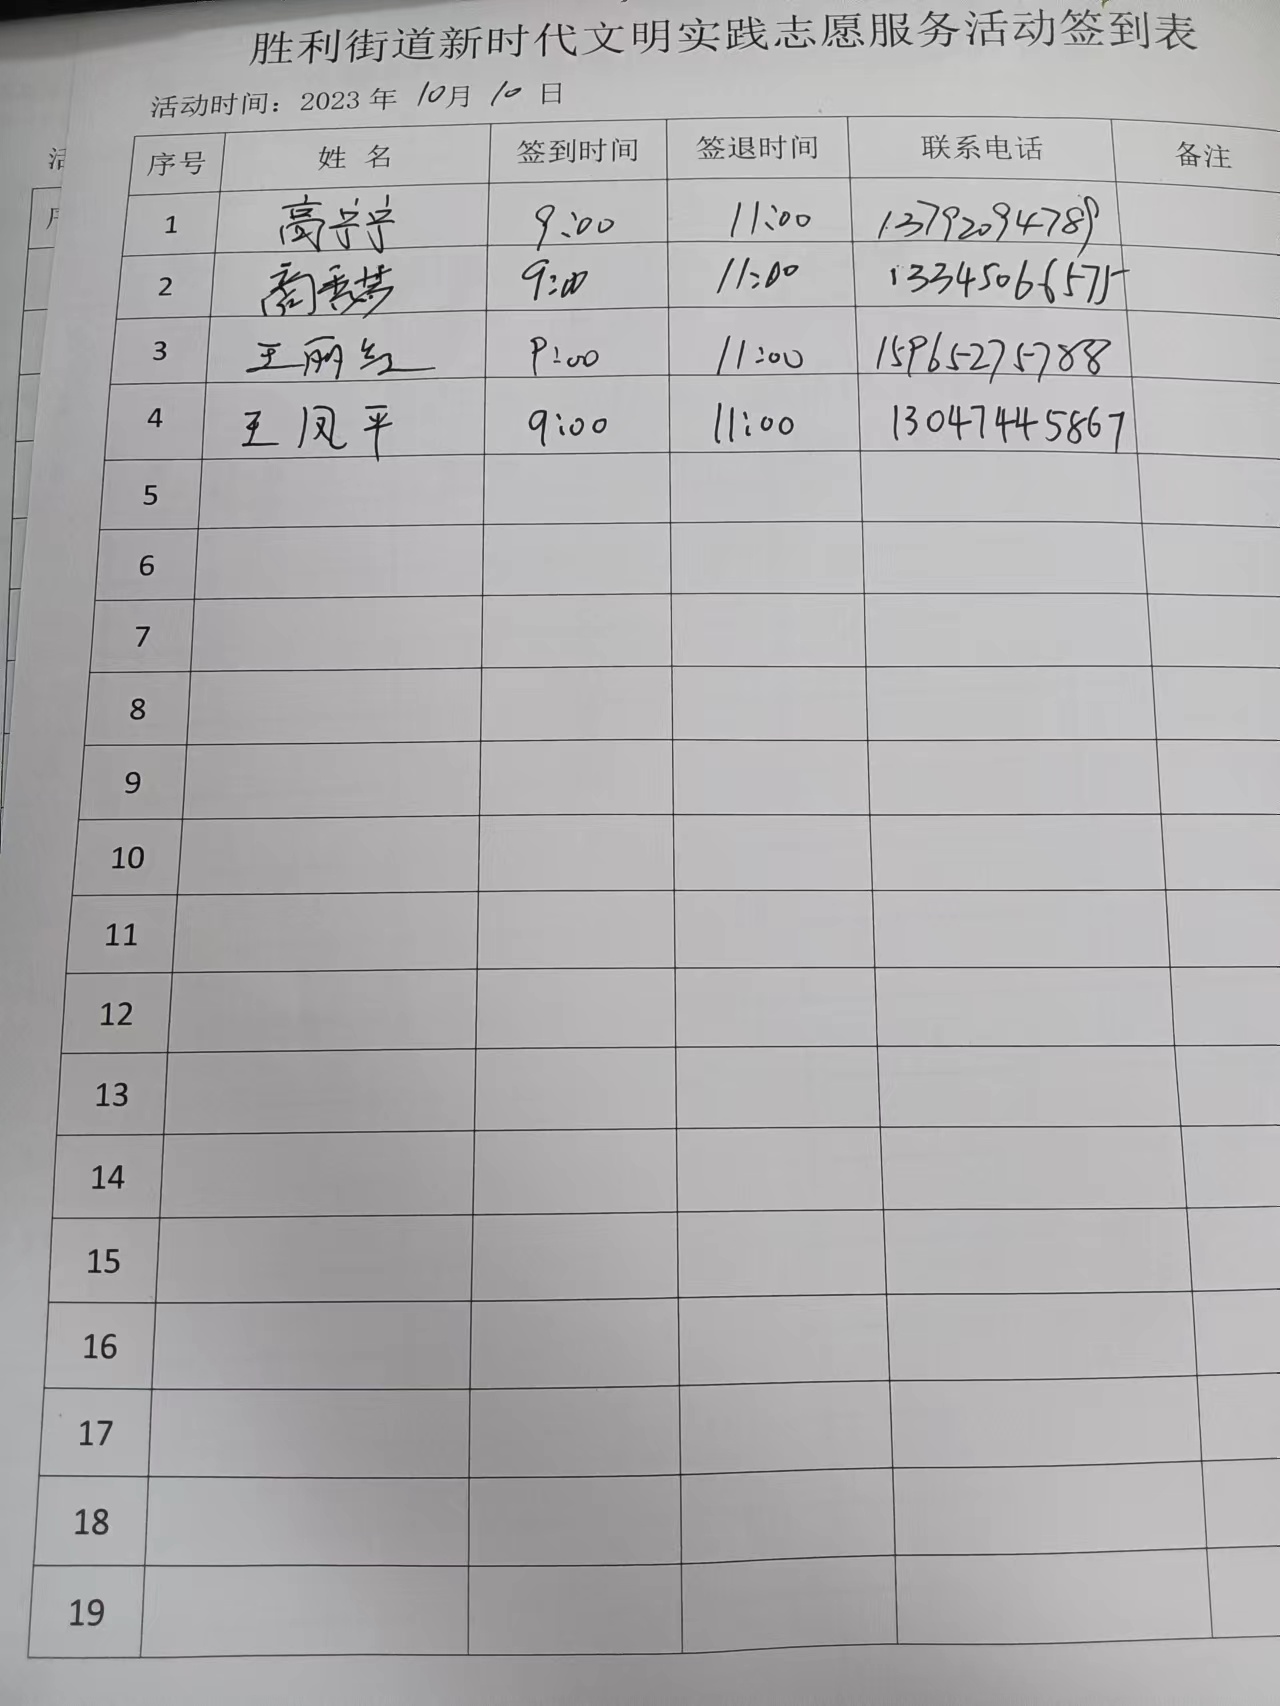 胜利街道新时代文明实践志愿服务活动签到表
活动时间：2023 年 10月 10 日
序号 姓 名 签到时间 签退时间 联系电话 备注
1 高宁宁 9:00 11:00 13792094789
2 9:00 11:00 13345066575
3 王丽红 9:00 11:00 15965275788
4 王凤平 9:00 11:00 13047445867
5
6
7
8
9
10
11
12
13
14
15
16
17
18
19